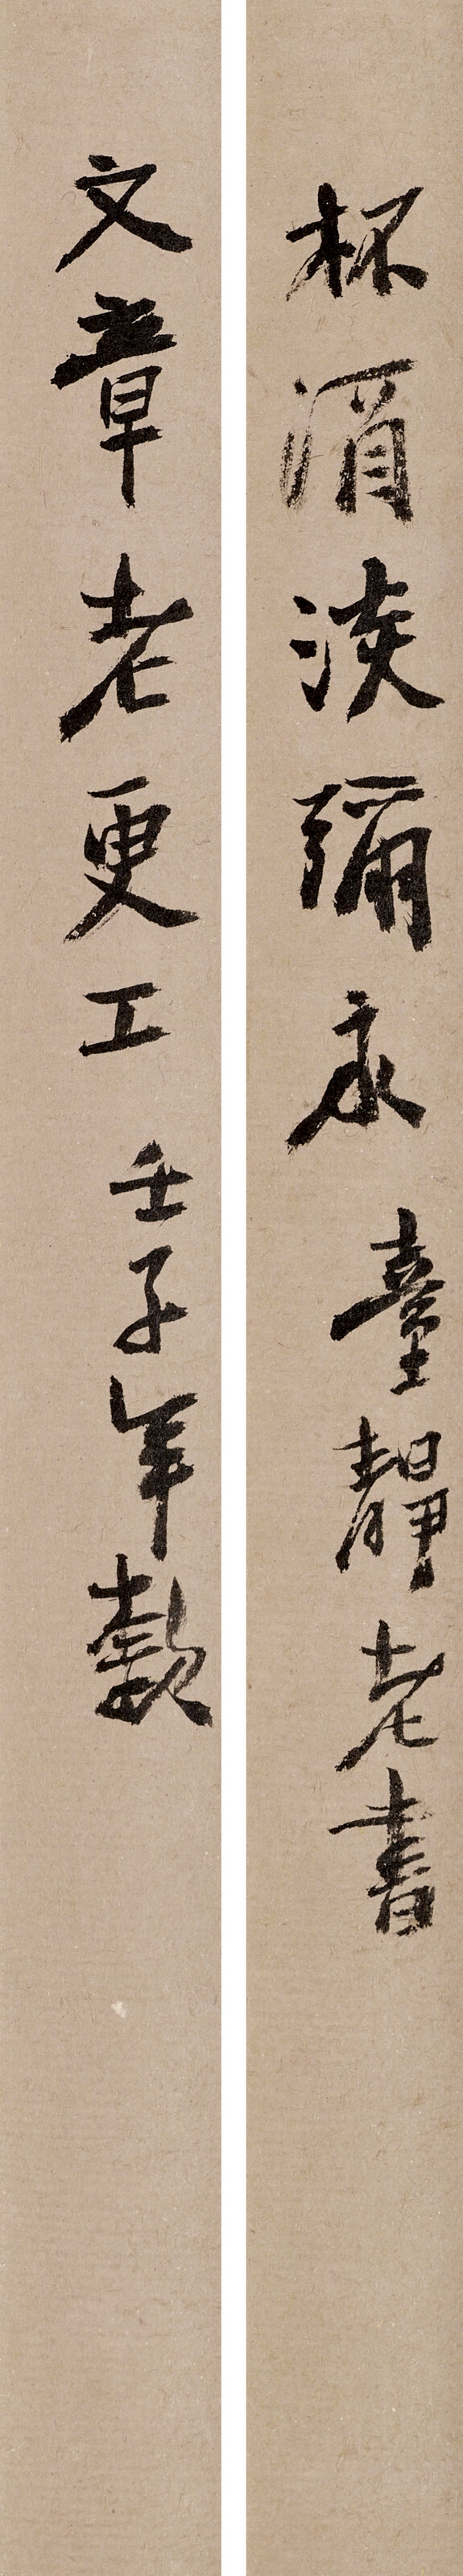 杯酒淡彌永 臺靜老書
文章老更工 壬子年